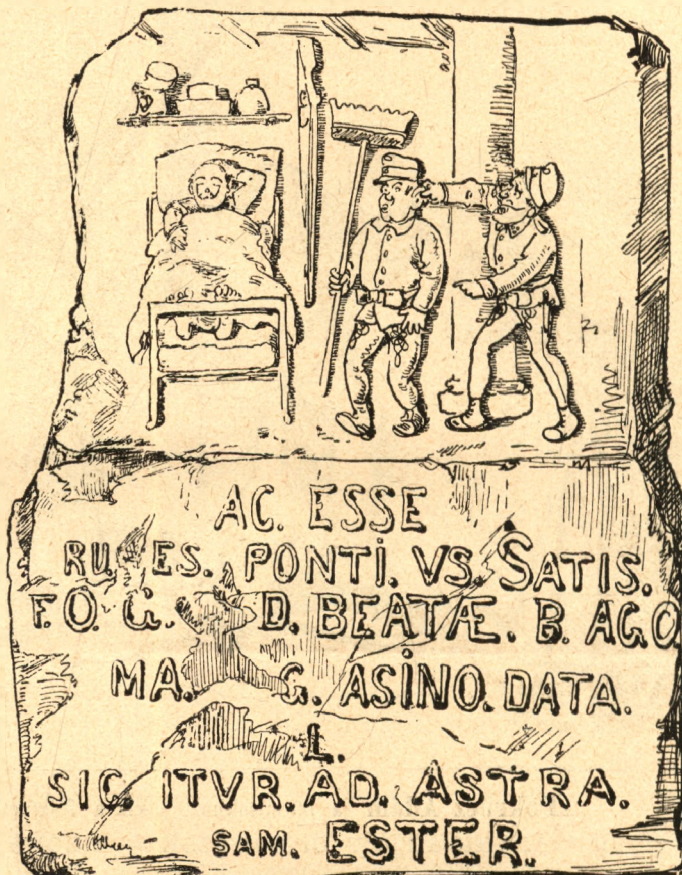 AC. ESSE
RU. ES. PONTI. VS. SATIS.
F. O. G. D. BEATÆ. B. AGO
MA. G. ASINO. DATA.
L.
SIC. ITVR. AD. ASTRA.
SAM. ESTER.